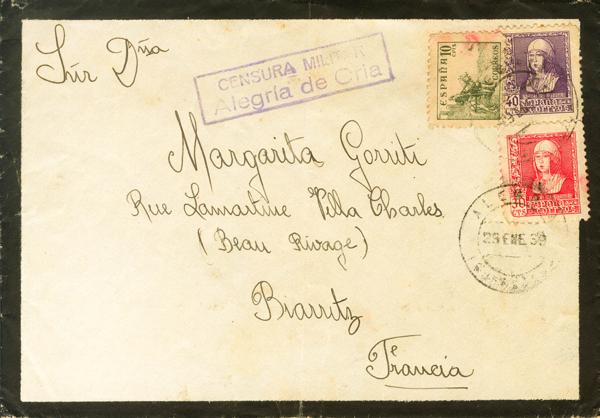 Sñr Dña
CENSURA MILITAR
Alegría de Oria
ESPAÑA 10 CTS
CORREOS
40
ESPAÑA
CORREOS
30
CTS
ESPAÑA
CORREOS
Margarita Gorriti
Rue Lamartine Villa Charles
(Beau Rivage)
Biarritz
Francia
25 ENE 39